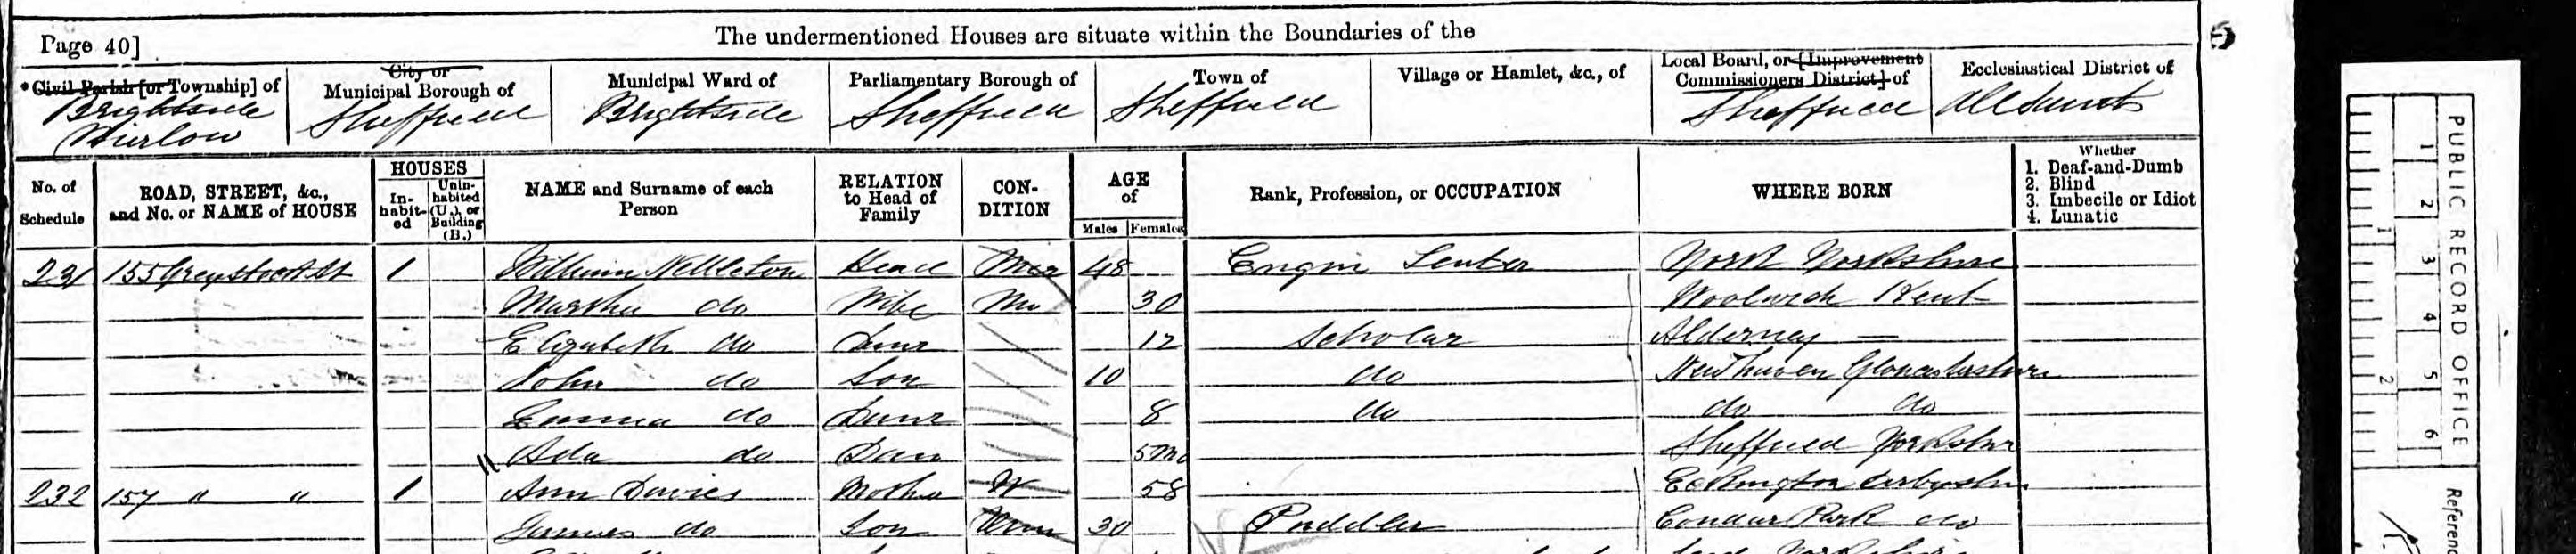 The undermentioned Houses are situate within the Boundaries of the
Page 40]
*Civil Parish [or Township] of
Brightside
City or
Municipal Borough of
Sheffield
Municipal Ward of
Brightside
Parliamentary Borough of
Sheffield
Town of
Sheffield
Village or Hamlet, &c., of
Local Board, or [Improvement
Commissioners District] of
Sheffield
Ecclesiastical District of
All Saints
No. of
Schedule
ROAD, STREET, &c.,
and No. or NAME of HOUSE
HOUSES
In-
habit-
ed
Unin-
habited
(U.), or
Building
(B.)
NAME and Surname of each
Person
RELATION
to Head of
Family
CON-
DITION
AGE
of
Males
Females
Rank, Profession, or OCCUPATION
WHERE BORN
Whether
1. Deaf-and-Dumb
2. Blind
3. Imbecile or Idiot
4. Lunatic
231 155 Greystock St 1 William Nettleton Head Mar 48 Engin York Yorkshire
Martha do Wife Mar 30 Woolwich Kent
Elizabeth do Daur 12 Scholar Alderney
John do Son 10 do Newhaven Gloucestershire
Emma do Daur 8 do do do
Ada do Daur 5 Mo Sheffield Yorkshire
232 157 " " 1 Ann Davies Mother W 58 Eckington Derbyshire
James do Son 30 Puddler Park do
PUBLIC RECORD OFFICE
1 2 3 4 5 6
1 2
Referenc